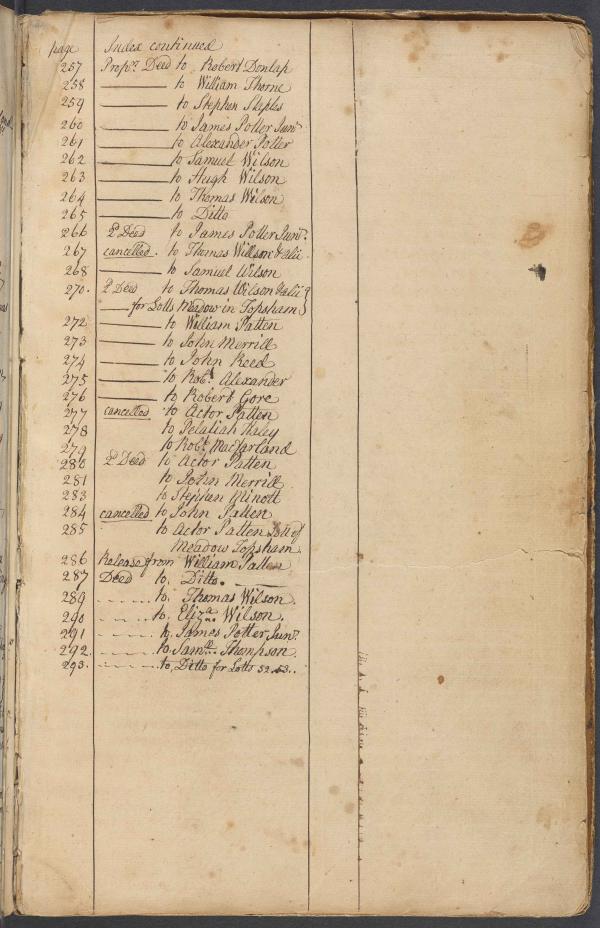 page Index continued
257 Prop.rs Deed to Robert Dunlap
258 ——— to William Thorne
259 ——— to Stephen Staples
260 ——— to James Potter Junr.
261 ——— to Alexander Potter
262 ——— to Samuel Wilson
263 ——— to Hugh Wilson
264 ——— to Thomas Wilson
265 ——— to Ditto
266 Deed to James Potter Junr.
267 cancelled. to Thomas Willson & alii
268 ——— to Samuel Wilson
270. Deed to Thomas Wilson & alii
——— for Lotts Meadow in Topsham
272 ——— to William Patten
273 ——— to John Merrill
274 ——— to John Reed
275 ——— to Robt. Alexander
276 ——— to Robert Gore
277 cancelled to Actor Patten
278 to Pelatiah Haley
279 to Robt. Macfarland
280 Deed to Actor Patten
281 to John Merrill
283 to Stephen Minott
284 cancelled to John Patten
285 to Actor Patten Lott of
Meadow Topsham
286 Release from William Patten
287 Deed to Ditto. ———
289 - - - - to. Thomas Wilson.
290 - - - - to. Eliza. Wilson.
291 - - - - to. James Potter Junr.
292 - - - - to Samll. Thompson
293. - - - - to, Ditto for Lotts 52.53..